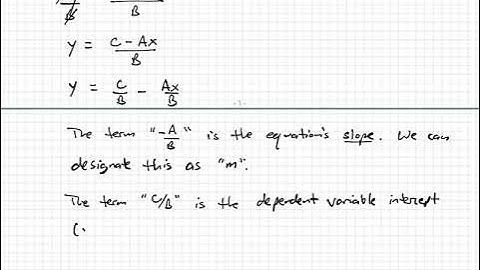 B
y = C - Ax / B
y = C/B - Ax/B
- 1 -
The term "-A/B" is the equation's slope. We can
designate this as "m".
The term "C/B" is the dependent variable intercept
(